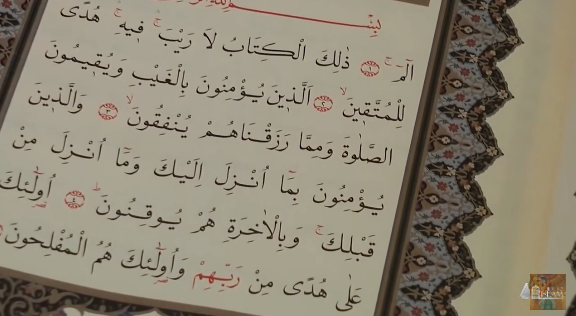 الٓمٓ ۚ ﴿١﴾ ذٰلِكَ الْكِتَابُ لَا رَيْبَ ۚ فٖيهِ ۚ هُدًى
لِلْمُتَّقٖينَ ۙ ﴿٢﴾ اَلَّذٖينَ يُؤْمِنُونَ بِالْغَيْبِ وَيُقٖيمُونَ
الصَّلٰوةَ وَمِمَّا رَزَقْنَاهُمْ يُنْفِقُونَ ۙ ﴿٣﴾ وَالَّذٖينَ
يُؤْمِنُونَ بِمَٓا اُنْزِلَ اِلَيْكَ وَمَٓا اُنْزِلَ مِنْ
قَبْلِكَ ۚ وَبِالْاٰخِرَةِ هُمْ يُوقِنُونَ ۜ ﴿٤﴾ اُو۬لٰٓئِكَ
عَلٰى هُدًى مِنْ رَبِّهِمْ وَاُو۬لٰٓئِكَ هُمُ الْمُفْلِحُونَ